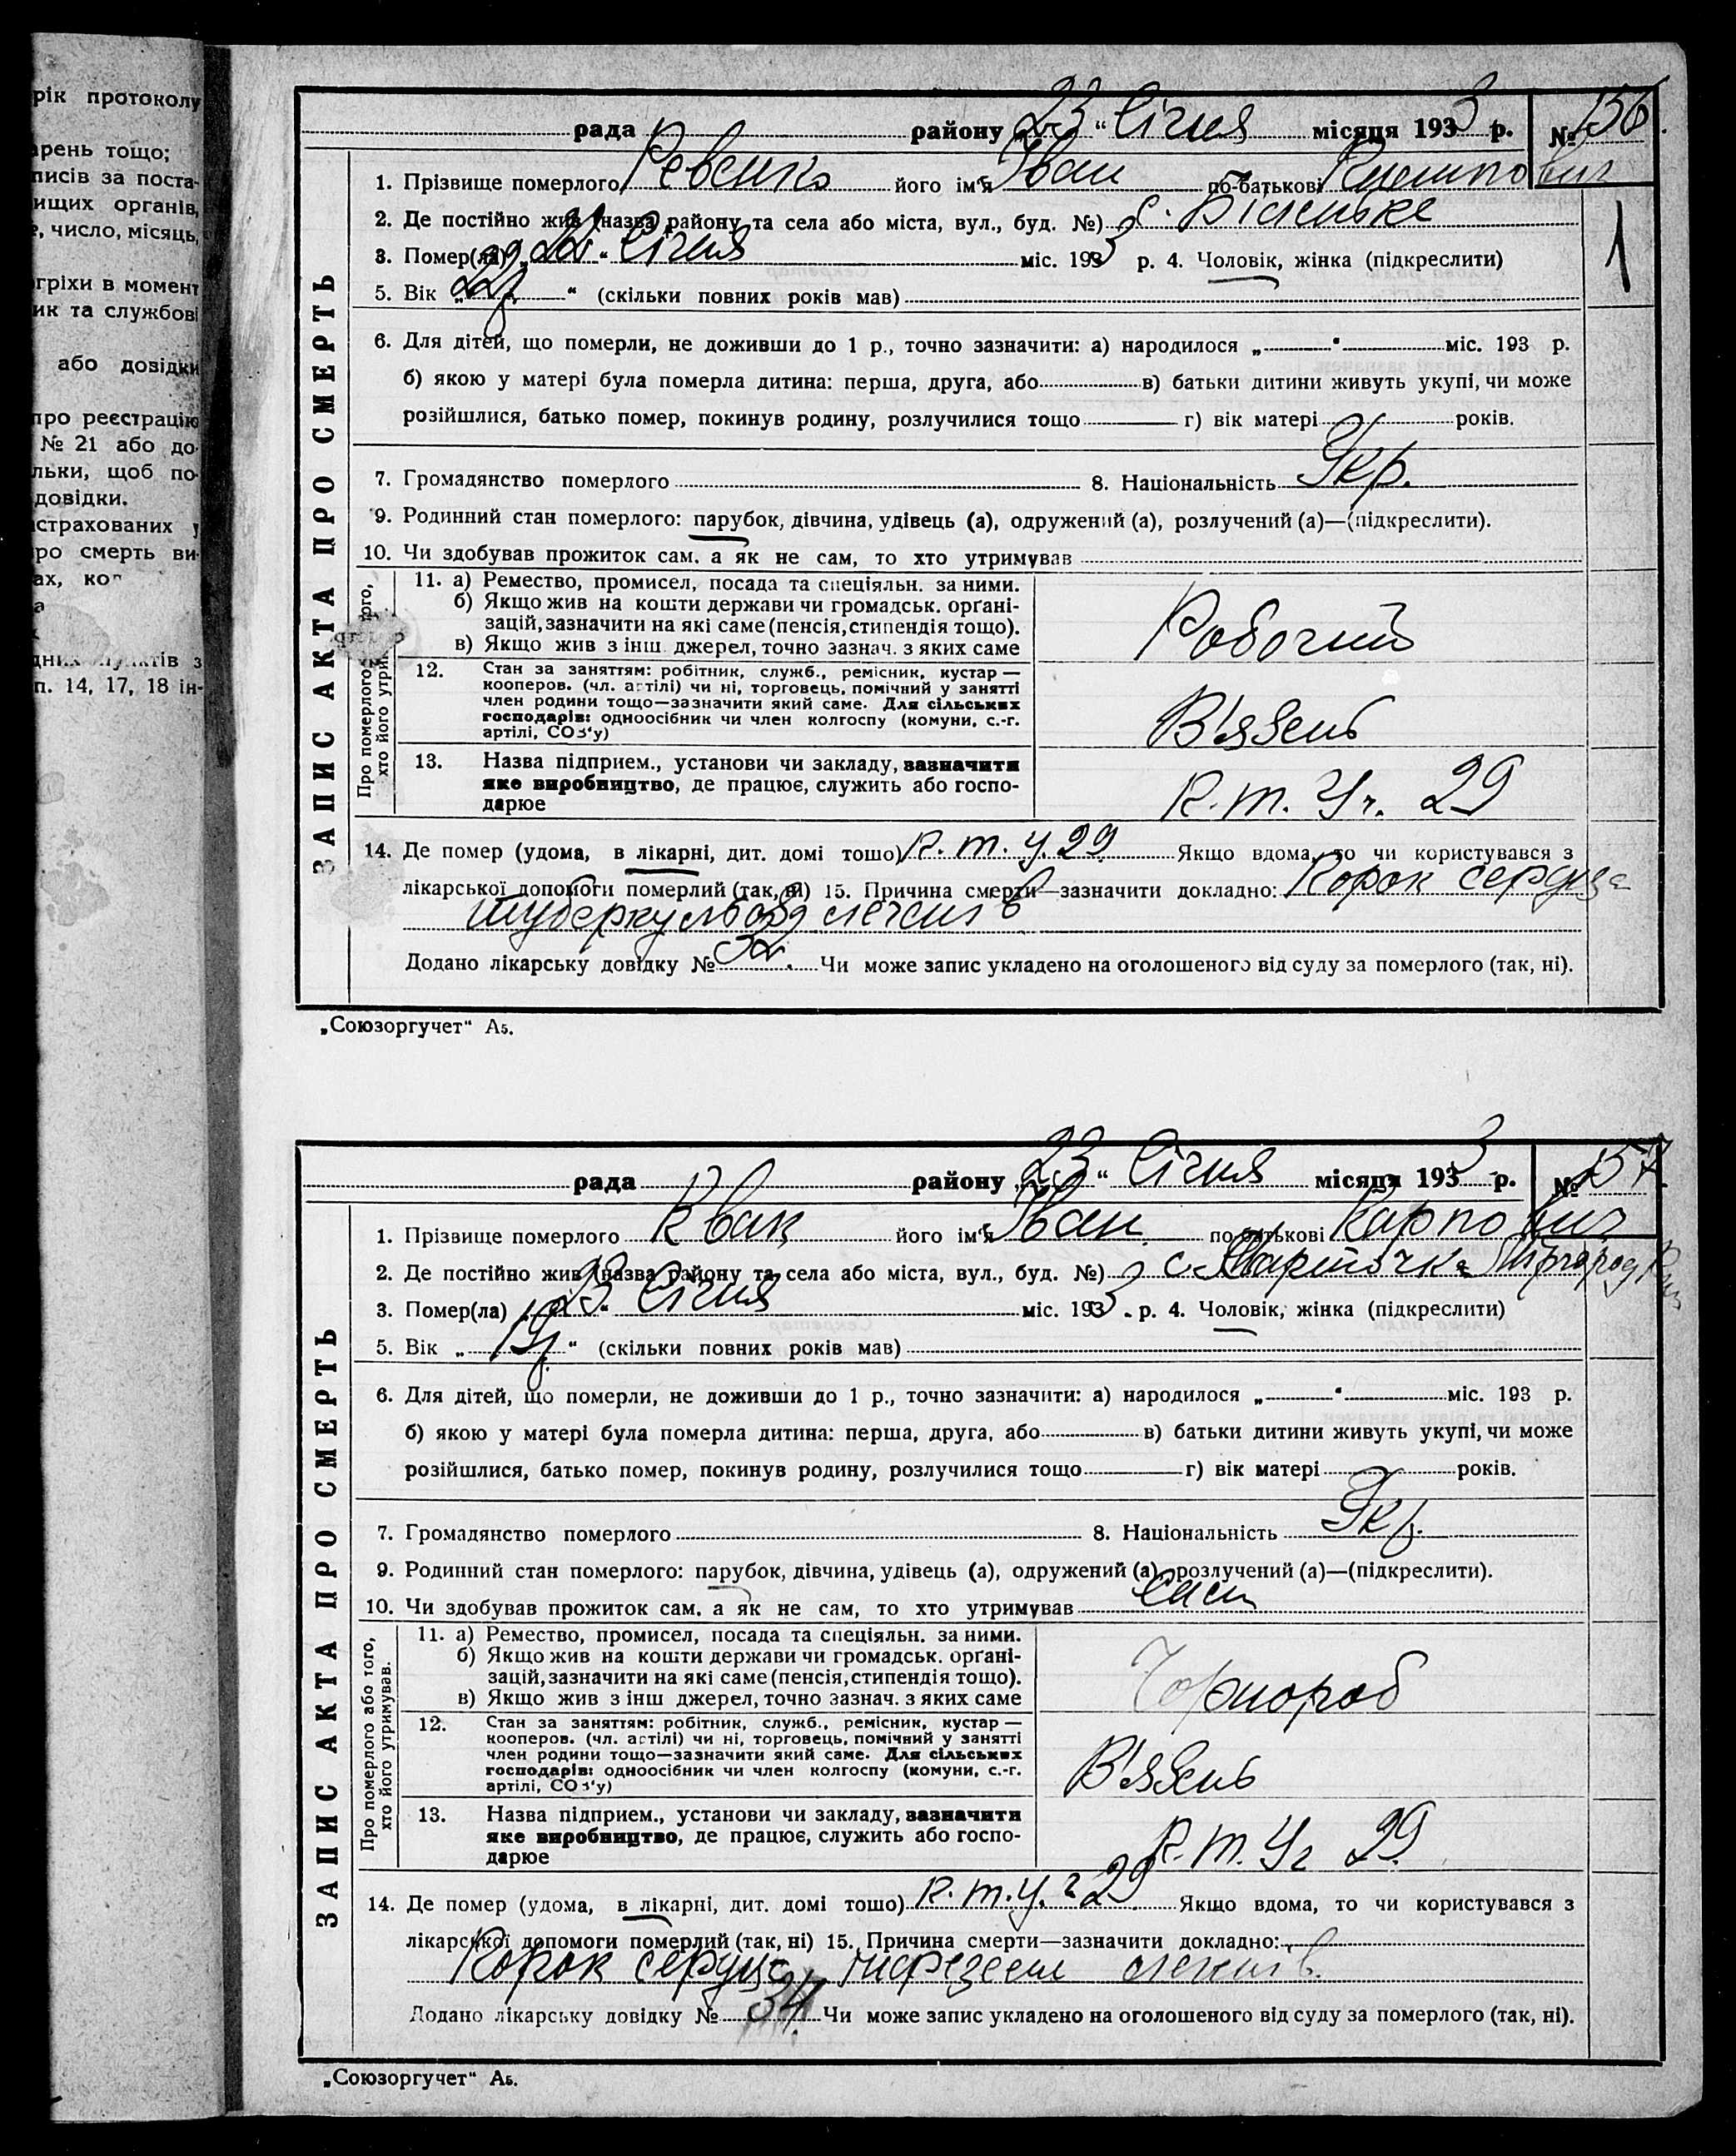 рік протоколу
арень тощо;
писів за поста-
ищих органів,
е, число, місяць,
гріхи в момент
ик та службові
або довідки
про реєстрацію
№ 21 або до-
льки, щоб по-
довідки.
астрахованих у
про смерть ви-
ах,
п. 14, 17, 18 ін-
ЗАПИС АКТА ПРО СМЕРТЬ
рада району „23“ Січня місяця 1933 р. № 156.
1. Прізвище померлого Ревенко його ім'я Іван по-батькові
2. Де постійно жив (назва району та села або міста, вул., буд. №) с. Біленьке
3. Помер(ла) „22“ Січня міс. 1933 р. 4. Чоловік, жінка (підкреслити)
1
5. Вік „ “ (скільки повних років мав)
6. Для дітей, що померли, не доживши до 1 р., точно зазначити: а) народилося „ “ міс. 193 р.
б) якою у матері була померла дитина: перша, друга, або в) батьки дитини живуть укупі, чи може
розійшлися, батько помер, покинув родину, розлучилися тощо г) вік матері років.
7. Громадянство померлого 8. Національність Укр.
9. Родинний стан померлого: парубок, дівчина, удівець (а), одружений (а), розлучений (а)—(підкреслити).
10. Чи здобував прожиток сам. а як не сам, то хто утримував
Про померлого
хто його утрим
11. а) Ремество, промисел, посада та спеціяльн. за ними.
б) Якщо жив на кошти держави чи громадськ. орґані-
зацій, зазначити на які саме (пенсія, стипендія тощо).
в) Якщо жив з інш джерел, точно зазнач. з яких саме
Робочий
12. Стан за заняттям: робітник, служб., ремісник, кустар —
кооперов. (чл. артілі) чи ні, торговець, помічний у занятті
член родини тощо—зазначити який саме. Для сільських
господарів: одноосібник чи член колгоспу (комуни, с.-г.
артілі, СОЗ'у)
В'язень
13. Назва підприєм., установи чи закладу, зазначити
яке виробництво, де працює, служить або госпо-
дарює
К. т. Уч. 29
14. Де помер (удома, в лікарні, дит. домі тощо) К. т. у. 29 Якщо вдома, то чи користувався з
лікарської допомоги померлий (так, ні) 15. Причина смерти—зазначити докладно: Порок серця
туберкульоз легенів
Додано лікарську довідку № 32. Чи може запис укладено на оголошеного від суду за померлого (так, ні).
„Союзоргучет“ А5.
ЗАПИС АКТА ПРО СМЕРТЬ
рада району „23“ Січня місяця 1933 р. № 157.
1. Прізвище померлого Квак його ім'я Іван по-батькові Карпович
2. Де постійно жив (назва району та села або міста, вул., буд. №) с.
3. Помер(ла) „ “ Січня міс. 1933 р. 4. Чоловік, жінка (підкреслити)
5. Вік „ “ (скільки повних років мав)
6. Для дітей, що померли, не доживши до 1 р., точно зазначити: а) народилося „ “ міс. 193 р.
б) якою у матері була померла дитина: перша, друга, або в) батьки дитини живуть укупі, чи може
розійшлися, батько помер, покинув родину, розлучилися тощо г) вік матері років.
7. Громадянство померлого 8. Національність Укр.
9. Родинний стан померлого: парубок, дівчина, удівець (а), одружений (а), розлучений (а)—(підкреслити).
10. Чи здобував прожиток сам. а як не сам, то хто утримував Сам
Про померлого або того,
хто його утримував.
11. а) Ремество, промисел, посада та спеціяльн. за ними.
б) Якщо жив на кошти держави чи громадськ. орґані-
зацій, зазначити на які саме (пенсія, стипендія тощо).
в) Якщо жив з інш джерел, точно зазнач. з яких саме
Чорнороб
12. Стан за заняттям: робітник, служб., ремісник, кустар —
кооперов. (чл. артілі) чи ні, торговець, помічний у занятті
член родини тощо—зазначити який саме. Для сільських
господарів: одноосібник чи член колгоспу (комуни, с.-г.
артілі, СОЗ'у)
В'язень
13. Назва підприєм., установи чи закладу, зазначити
яке виробництво, де працює, служить або госпо-
дарює
К. т. Уч 29
14. Де помер (удома, в лікарні, дит. домі тощо) К. т. у. ч 29 Якщо вдома, то чи користувався з
лікарської допомоги померлий (так, ні) 15. Причина смерти—зазначити докладно:
Порок серця, легенів.
Додано лікарську довідку № 34. Чи може запис укладено на оголошеного від суду за померлого (так, ні).
„Союзоргучет“ А5.